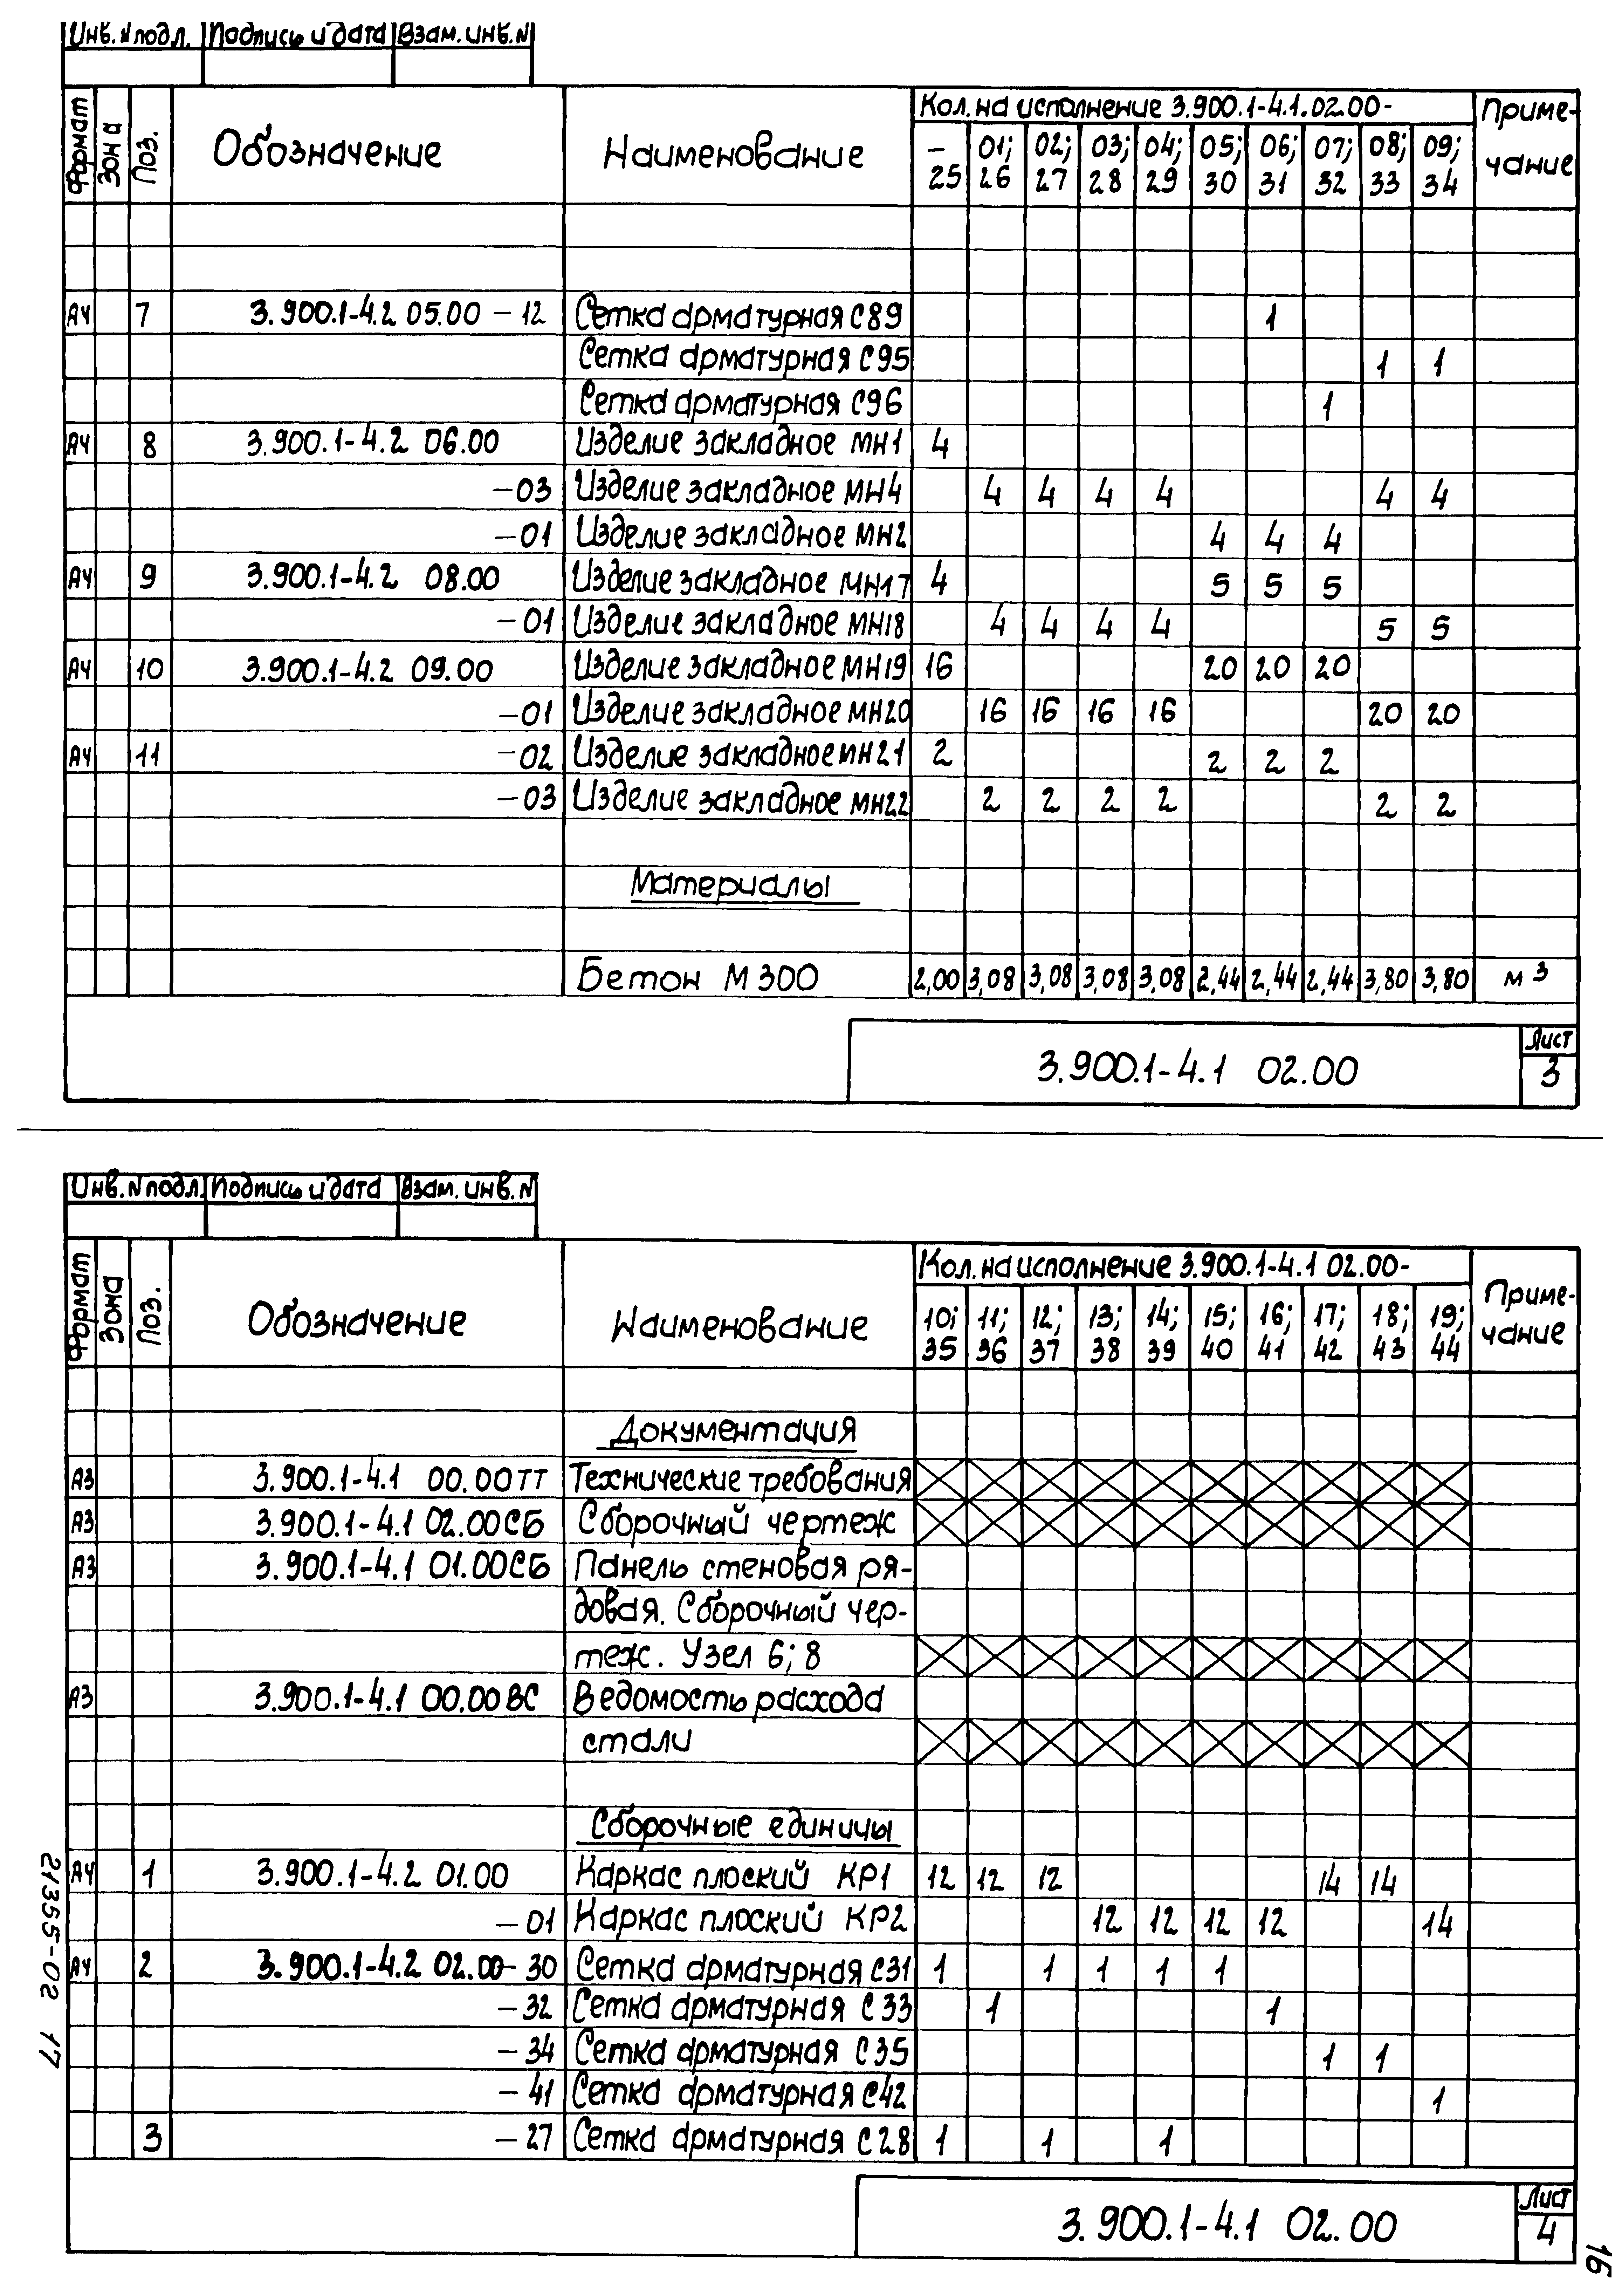 Инв. N подл. Подпись и дата Взам. инв. N
Формат Зона Поз. Обозначение Наименование Кол. на исполнение 3.900.1-4.1.02.00- Приме-чание
– 25 01; 26 02; 27 03; 28 04; 29 05; 30 06; 31 07; 32 08; 33 09; 34
А4 7 3.900.1-4.2 05.00 – 12 Сетка арматурная С89 1
Сетка арматурная С95 1 1
Сетка арматурная С96 1
А4 8 3.900.1-4.2 06.00 Изделие закладное МН1 4
–03 Изделие закладное МН4 4 4 4 4 4 4
–01 Изделие закладное МН2 4 4 4
А4 9 3.900.1-4.2 08.00 Изделие закладное МН17 4 5 5 5
–01 Изделие закладное МН18 4 4 4 4 5 5
А4 10 3.900.1-4.2 09.00 Изделие закладное МН19 16 20 20 20
–01 Изделие закладное МН20 16 16 16 16 20 20
А4 11 –02 Изделие закладное МН21 2 2 2 2
–03 Изделие закладное МН22 2 2 2 2 2 2
Материалы
Бетон М 300 2,00 3,08 3,08 3,08 3,08 2,44 2,44 2,44 3,80 3,80 м³
3.900.1-4.1 02.00 Лист 3
Инв. N подл. Подпись и дата Взам. инв. N
Формат Зона Поз. Обозначение Наименование Кол. на исполнение 3.900.1-4.1 02.00- Приме-чание
10; 35 11; 36 12; 37 13; 38 14; 39 15; 40 16; 41 17; 42 18; 43 19; 44
Документация
А3 3.900.1-4.1 00.00ТТ Технические требования
А3 3.900.1-4.1 02.00СБ Сборочный чертеж
А3 3.900.1-4.1 01.00СБ Панель стеновая ря-
довая. Сборочный чер-
теж. Узел 6; 8
А3 3.900.1-4.1 00.00ВС Ведомость расхода
стали
Сборочные единицы
А4 1 3.900.1-4.2 01.00 Каркас плоский КР1 12 12 12 14 14
–01 Каркас плоский КР2 12 12 12 12 14
А4 2 3.900.1-4.2 02.00–30 Сетка арматурная С31 1 1 1 1 1
–32 Сетка арматурная С33 1 1
–34 Сетка арматурная С35 1 1
–41 Сетка арматурная С42 1
3 –27 Сетка арматурная С28 1 1 1
3.900.1-4.1 02.00 Лист 4
21355-02 17
16